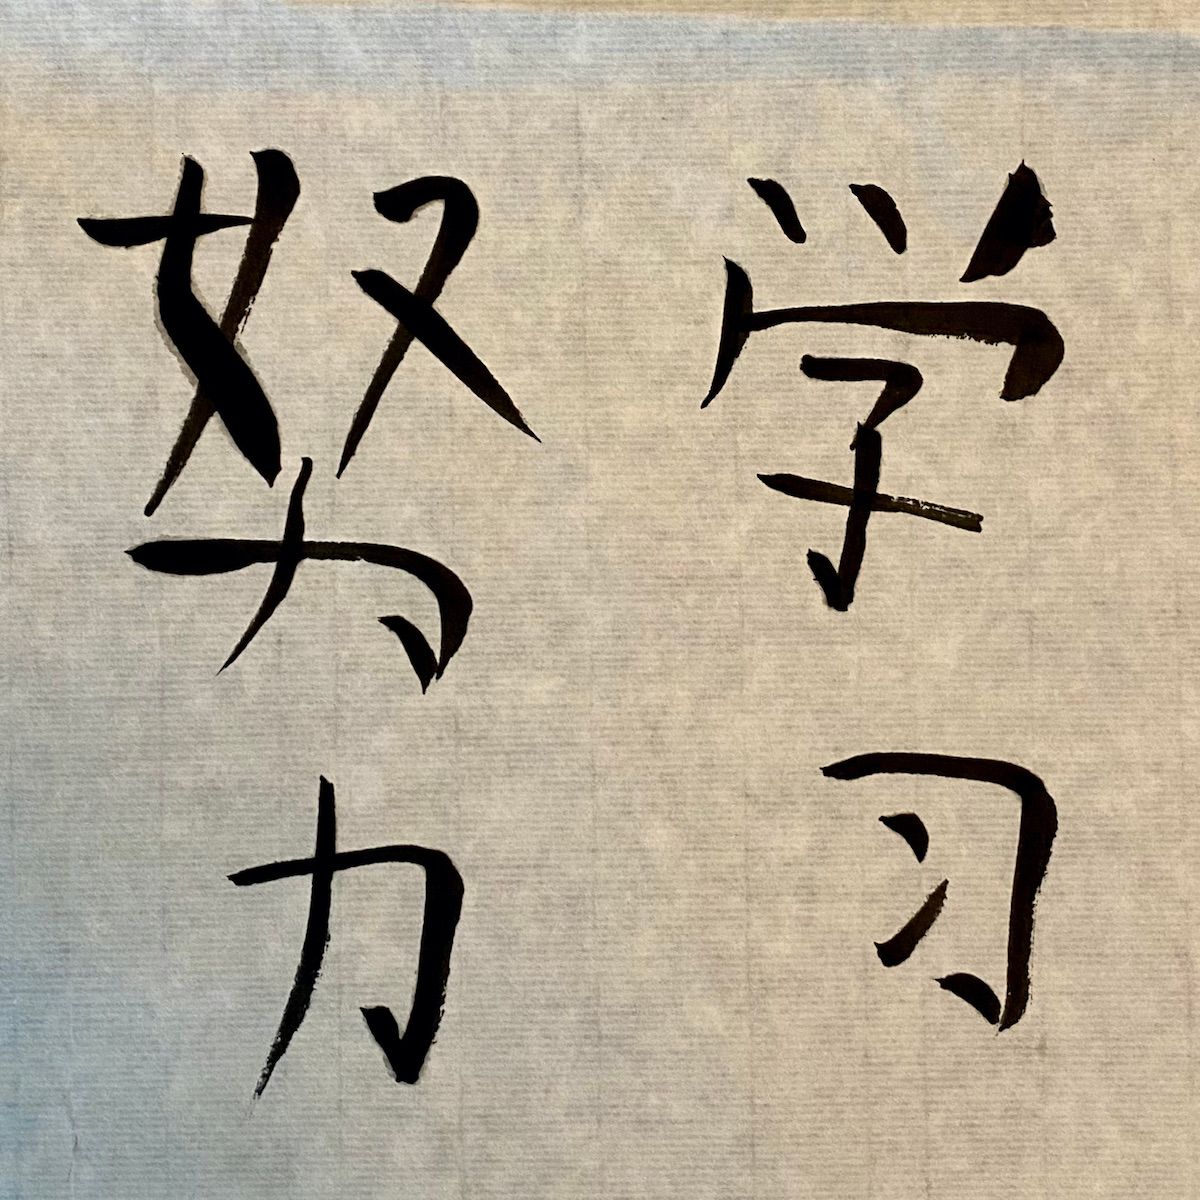 学习
努力